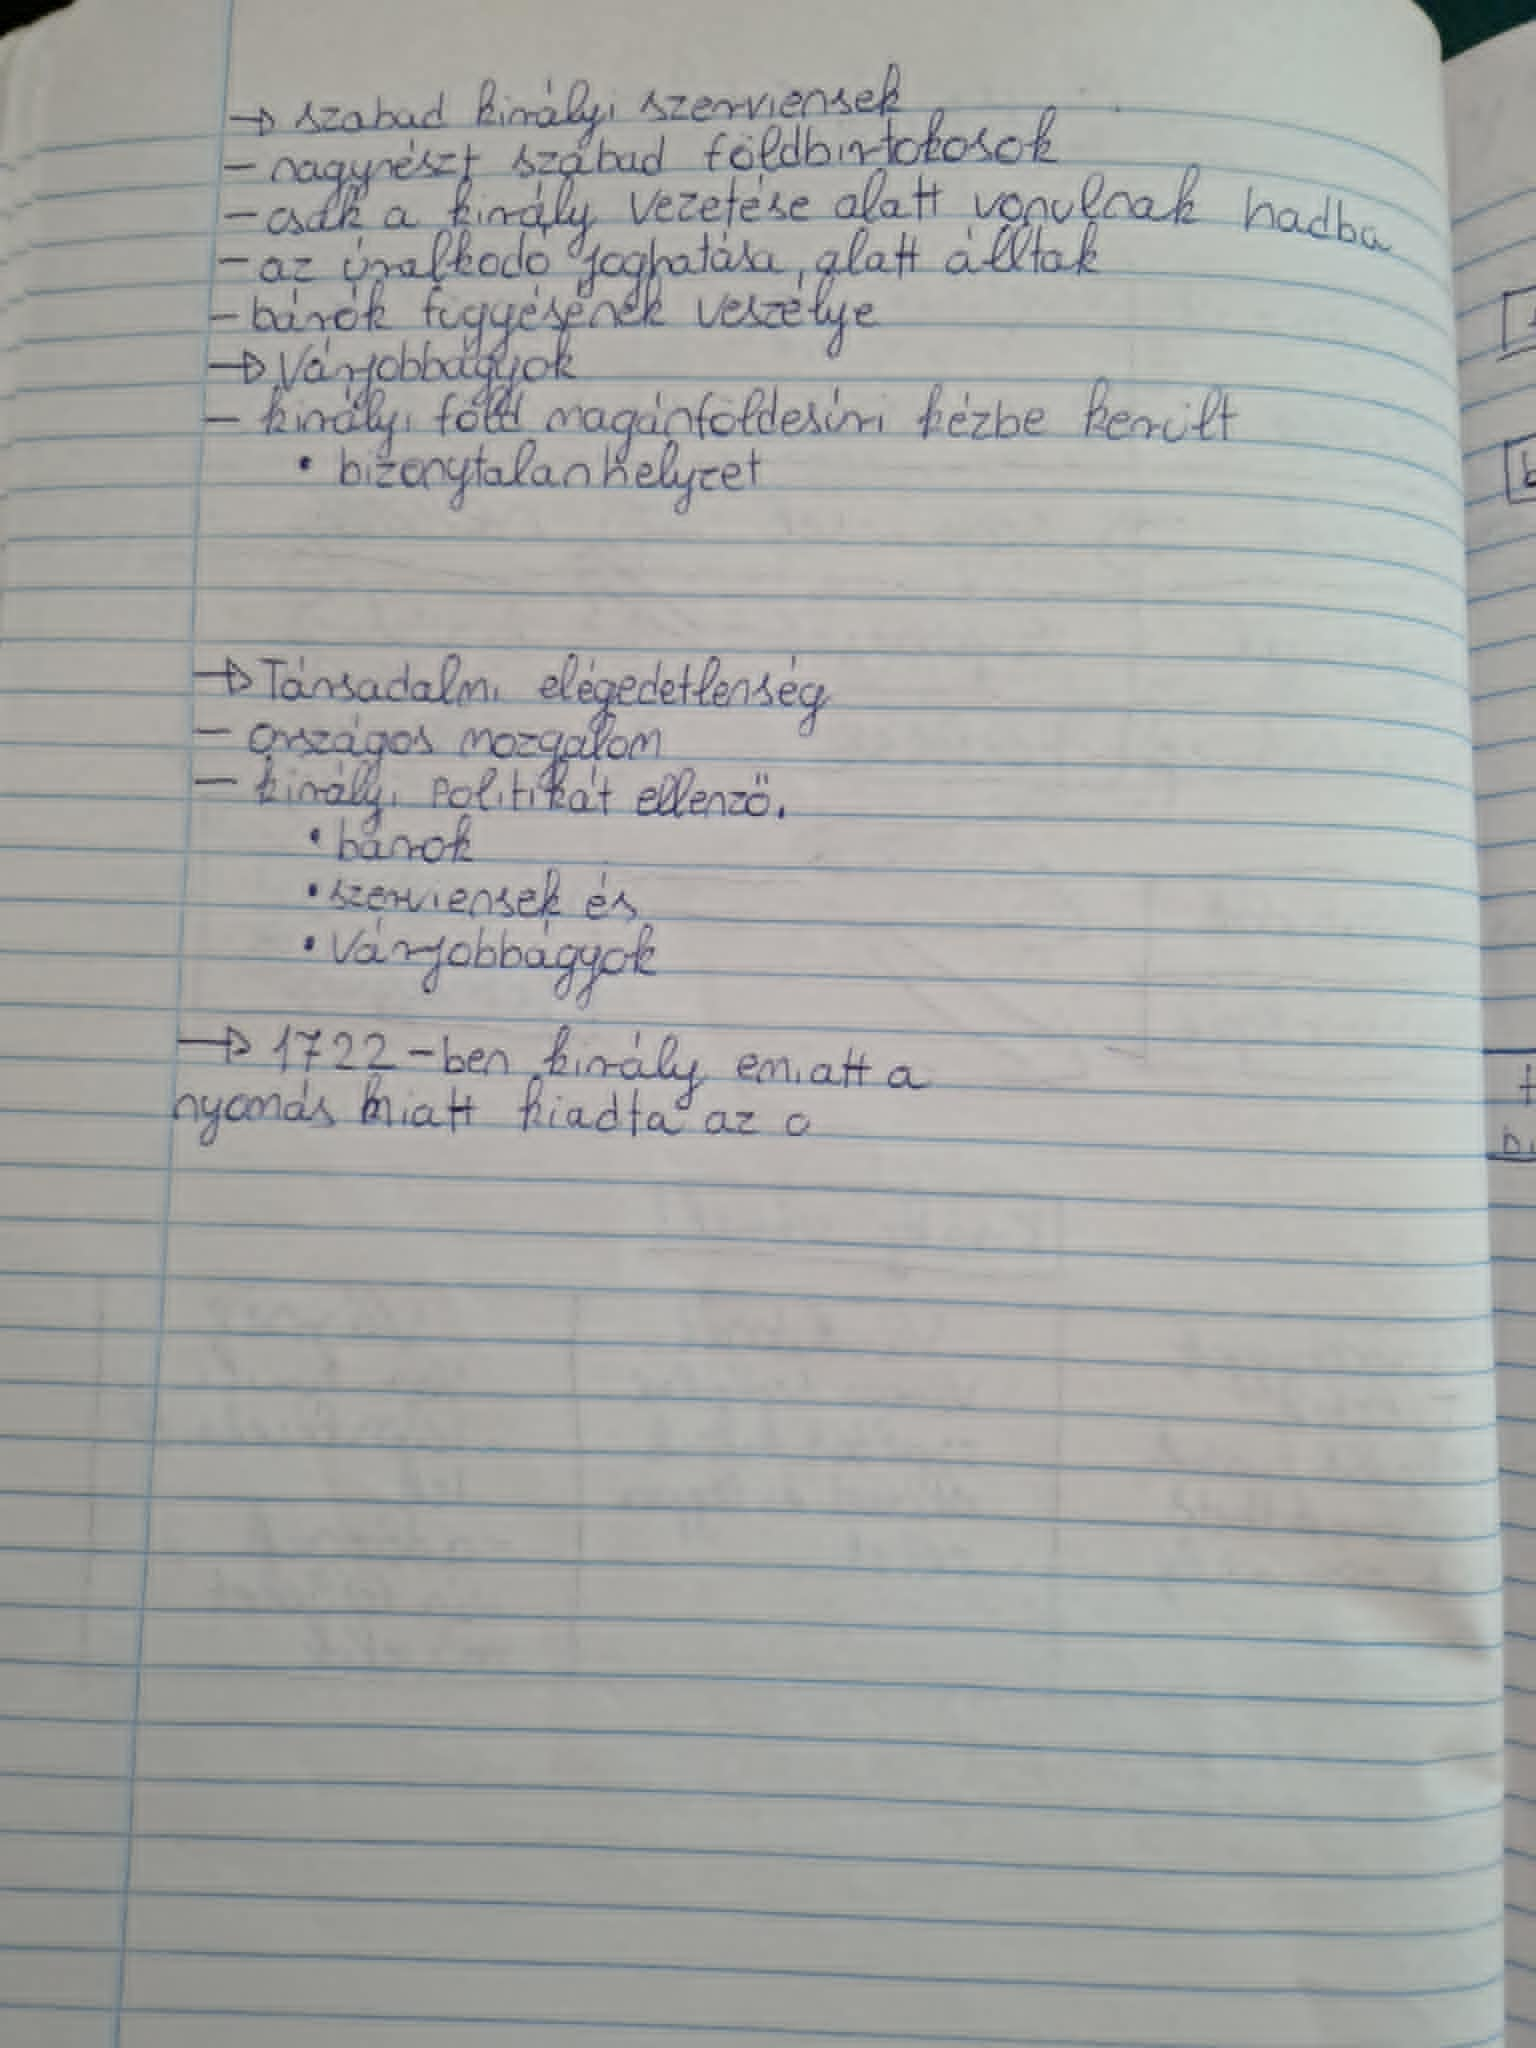 → szabad királyi szerviensek
- nagyrészt szabad földbirtokosok
- csak a király vezetése alatt vonulnak hadba
- az úralkodó joghatása alatt álltak
- bárók függésének veszélye
→ Várjobbágyok
- királyi föld magánföldesúri kézbe került
• bizonytalan helyzet
→ Társadalmi elégedetlenség
- országos mozgalom
- királyi politikát ellenző.
• bárok
• szerviensek és
• Várjobbágyok
→ 1722-ben király emiatt a
nyomás miatt kiadta az a